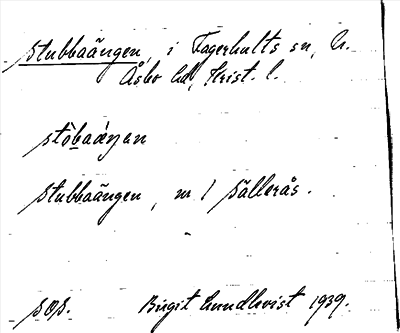 Stubbaängen, i Fagerhults sn, N.
Åsbo hd, Krist. l.
stòbaáŋen
Stubbaängen, nr 1 Sällerås.
SOS. Birgit Lundkvist 1939.